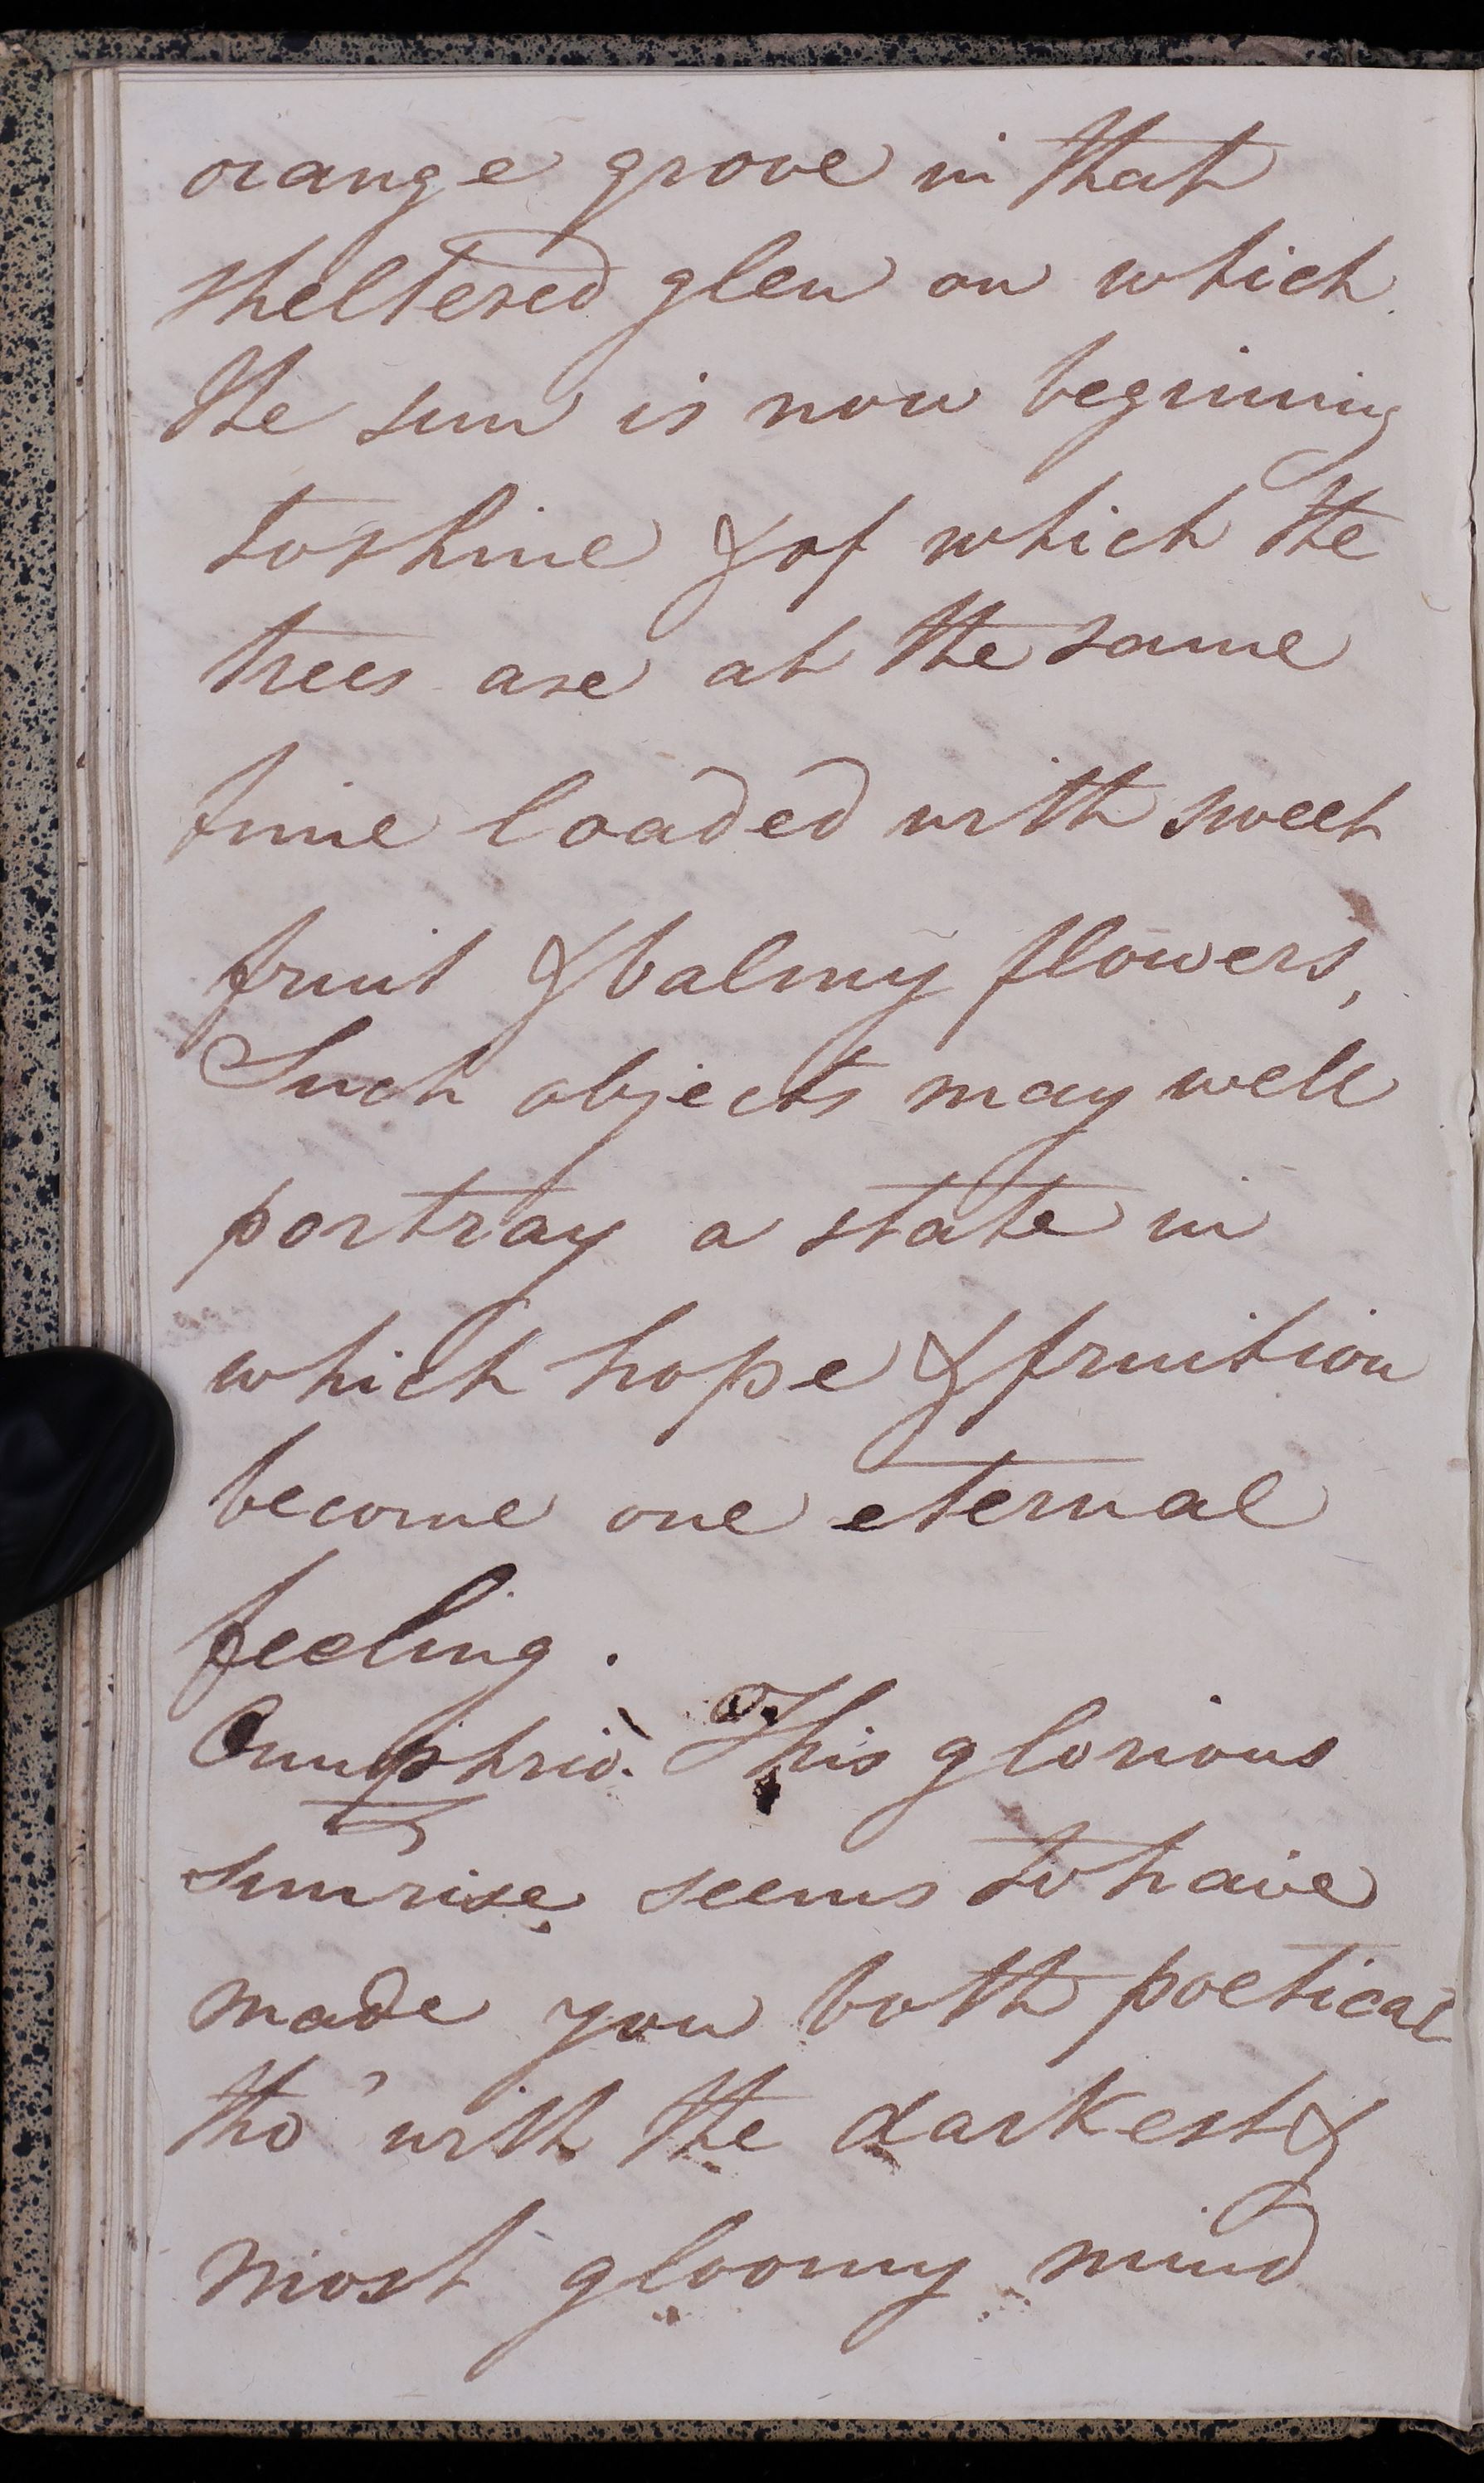 orange grove in that
sheltered glen on which
the sun is now beginning
to shine & of which the
trees are at the same
time loaded with sweet
fruit & balmy flowers,
Such objects may well
portray a state in
which hope & fruition
become one eternal
feeling.
Onuphrio. This glorious
sunrise seems to have
made you both poetical
tho' with the darkest &
most gloomy mind